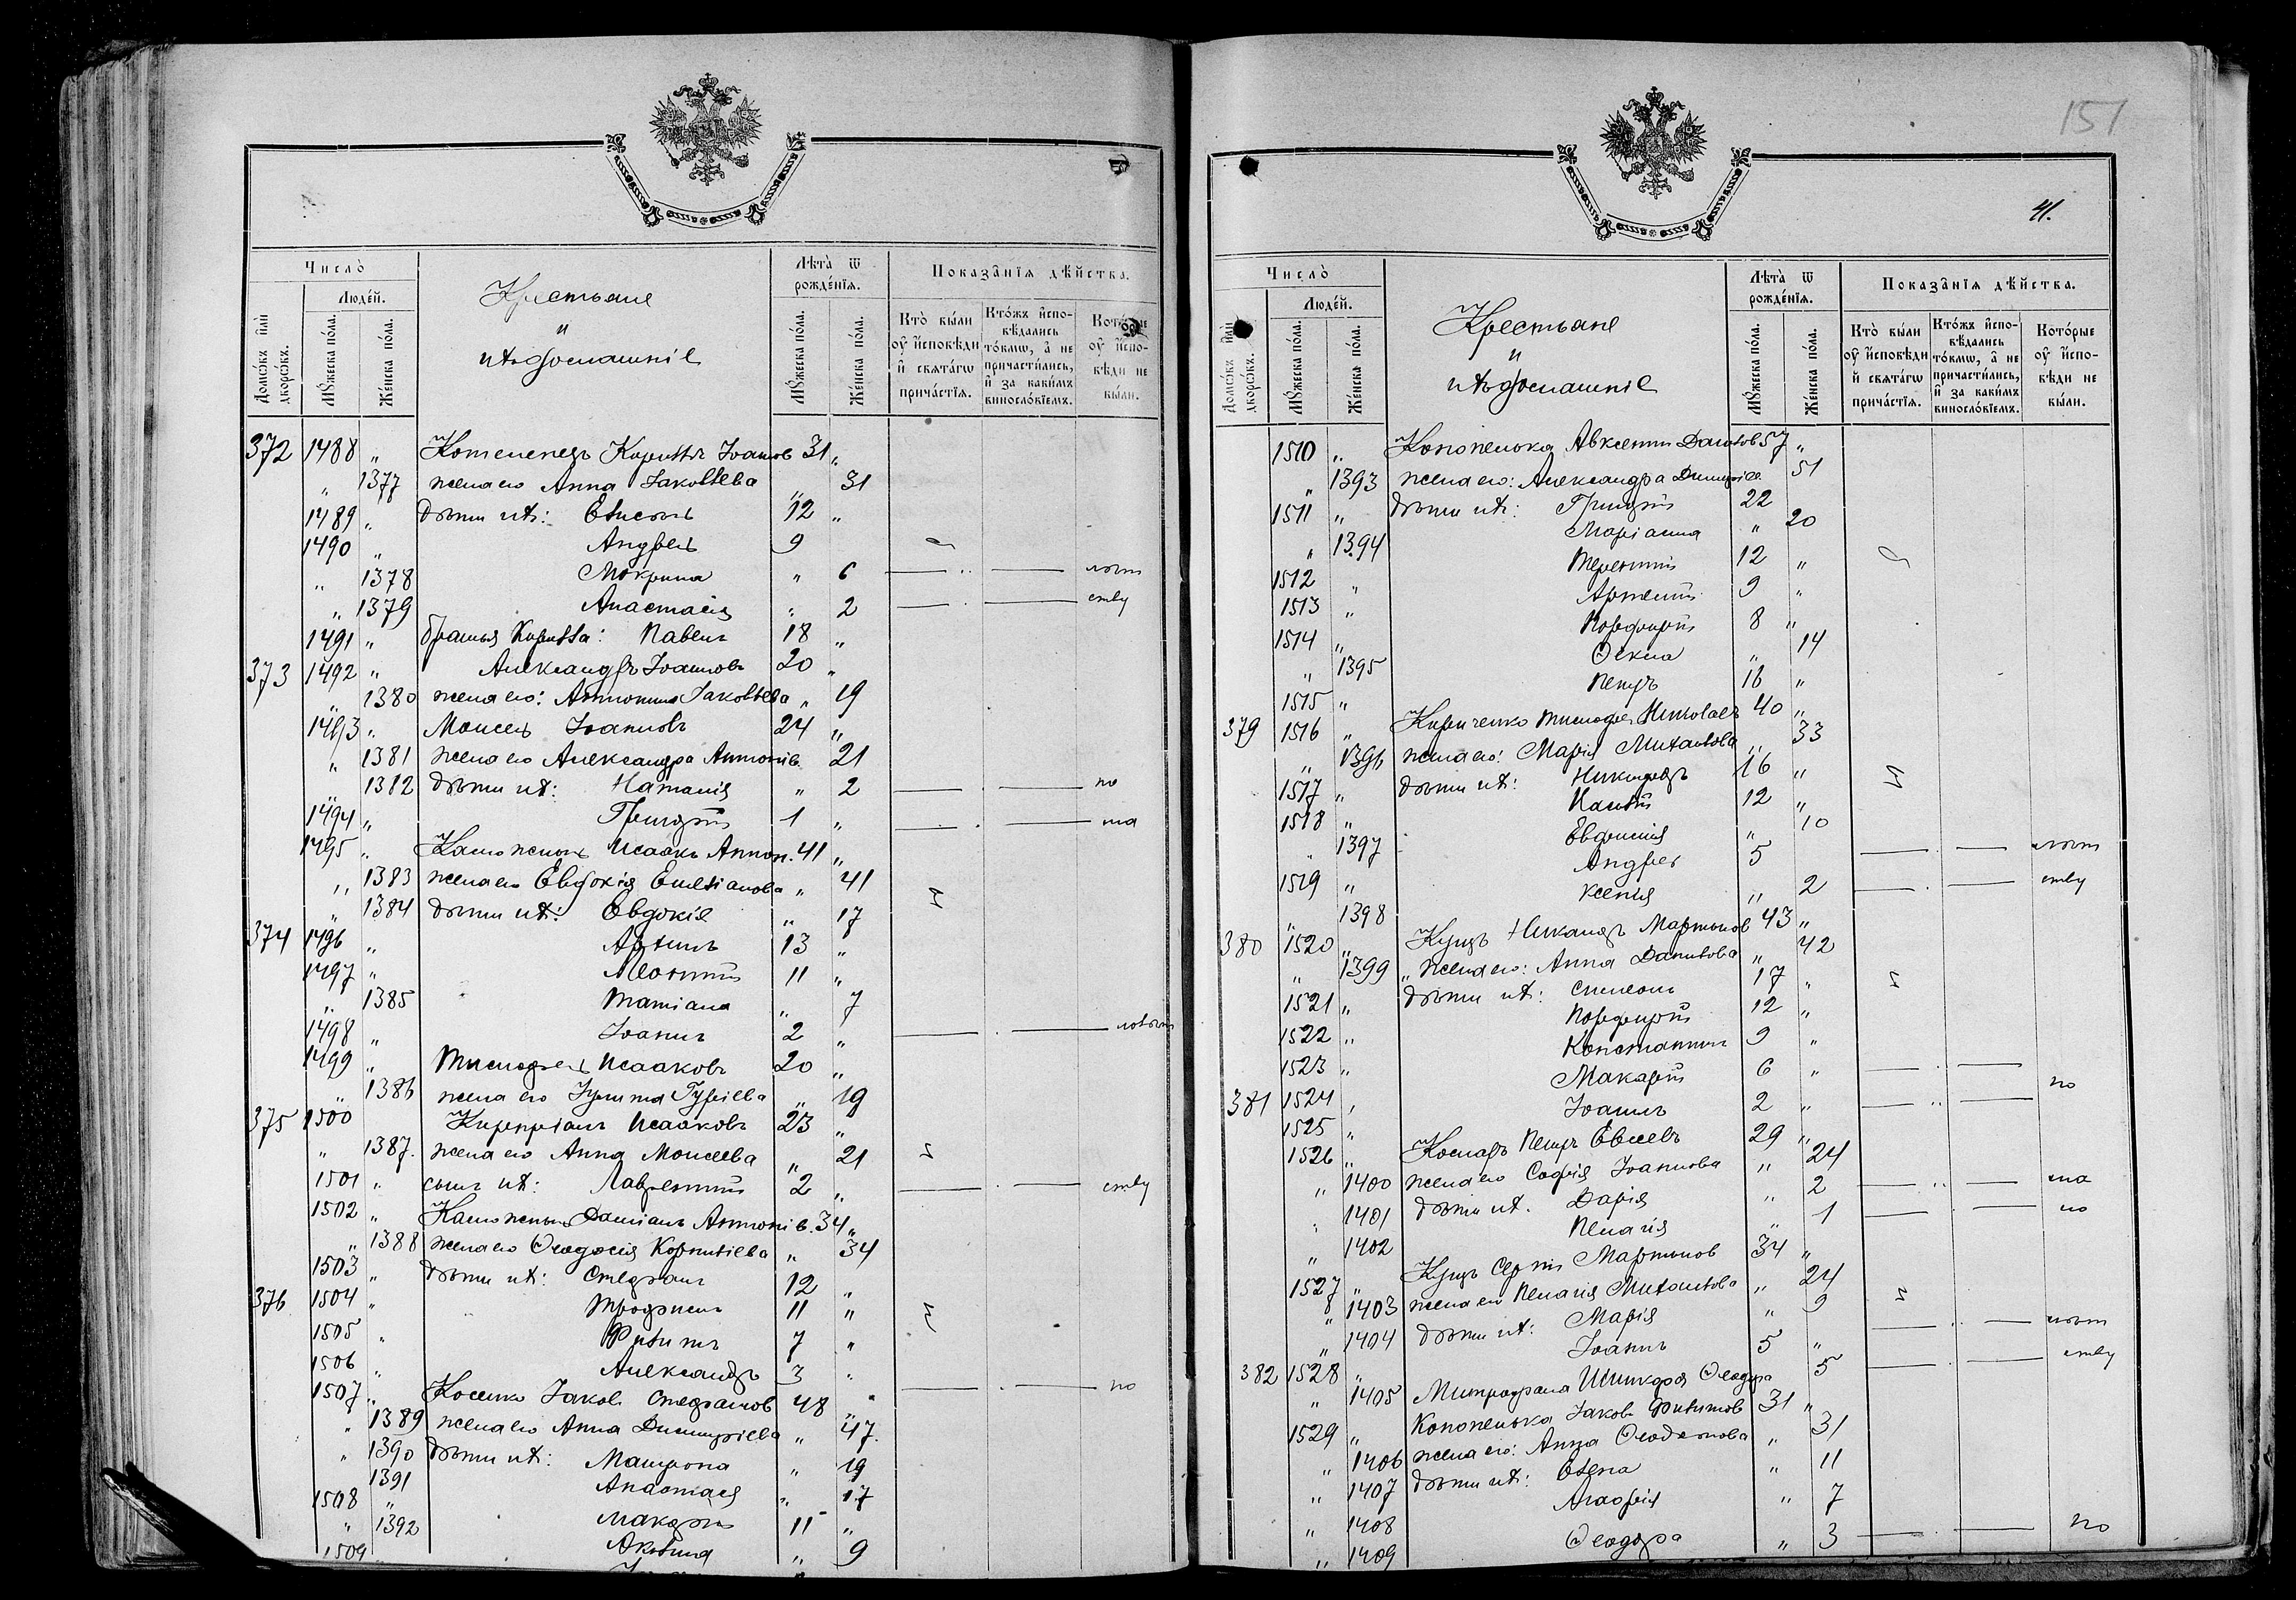 Число̀
Людей.
Домо́въ и҆лѝ дворо́въ.
Мꙋ́жеска по́ла.
Же́нска по́ла.
Крестьяне
и
ихъ домашніе
Лѣ́та ѿ рожде́нїѧ.
Мꙋ́жеска по́ла.
Же́нска по́ла.
Показа̑нїѧ дѣ́йства.
Кто̀ бы́ли ᲂу҆ и҆сповѣ́ди и҆ свѧта́гѡ прича́стїѧ.
Кто́жъ и҆спо-вѣ́дались то́кмѡ, а҆ не причасти́лись, и҆ за каки́мъ винослѡ́вїемъ.
Кото́рые ᲂу҆ и҆спо-вѣ́ди не бы́ли.
372 1488 " Котенецъ Кириллъ Іоаннов 31 "
" 1377 жена его Анна Іаковлева " 31
1489 " дѣти ихъ: Елисей 12 "
1490 " Андрей 9
" 1378 Мокрина " 6 — " — лѣт
" 1379 Анастасія " 2 — . — ству
1491 " братья Кирилла: Павелъ 18 "
373 1492 " Александръ Іоанновъ 20 "
" 1380 жена его: Антонина Іаковлева " 19
1493 " Моисей Іоанновъ 24 "
" 1381 жена его Александра Антоніев. 21
" 1382 дѣти ихъ: Наталія " 2 — . — по
1494 " Григорій 1 " — . — ма
1495 " Исаакъ Антон. 41 "
" 1383 жена его Евдокія Емеліанова " 41
" 1384 дѣти ихъ: Евдокія " 17
374 1496 " 13 "
1497 " Леонтій 11 "
" 1385 Татіана " 7
1498 " Іоаннъ 2 " — . —
1499 " Тимофей Исааковъ 20 "
" 1386 жена его Гуріева " 19
375 1500 Кипріанъ Исааковъ 23 "
" 1387. жена его Анна Моисеева " 21
1501 " сынъ ихъ: Лаврентій 2 " — . — ству
1502 " Даміанъ Антоніев. 34 "
" 1388 жена его Ѳеодосія Корниліева " 34
1503 " дѣти ихъ: Стефанъ 12 "
376 1504 " Трофимъ 11 "
1505 " Филипъ 7 "
1506 " Александръ 3 "
1507 " Косенко Іаковъ Стефанов 48 " — . — по
" 1389 жена его Анна Димитріева " 47.
" 1390 дѣти ихъ: Матрона " 19
1391 Анастасія " 17
1508 " Макарій 11 "
" 1392 Акилина " 9
1509
151
41.
Число̀
Людей.
Домо́въ и҆лѝ дворо́въ.
Мꙋ́жеска по́ла.
Же́нска по́ла.
Крестьяне
и
ихъ домашніе
Лѣ́та ѿ рожде́нїѧ.
Мꙋ́жеска по́ла.
Же́нска по́ла.
Показа̑нїѧ дѣ́йства.
Кто̀ бы́ли ᲂу҆ и҆сповѣ́ди и҆ свѧта́гѡ прича́стїѧ.
Кто́жъ и҆спо-вѣ́дались то́кмѡ, а҆ не причасти́лись, и҆ за каки́мъ винослѡ́вїемъ.
Кото́рые ᲂу҆ и҆спо-вѣ́ди не бы́ли.
1510 " Конопелька Авксентій Данилов 57 "
" 1393 жена его: Александра Димитріев. 51
1511 " дѣти ихъ: Григорій 22
" 1394 Маріанна " 20
1512 " Терентій 12 "
1513 " Артемій 9 "
1514 " Порфирій 8 "
" 1395 Ѳекла " 14
1515 " Петръ 16 "
379 1516 " Кириченко Тимофей Николаев 40 "
" 1396 жена его: Марія Михаилова " 33
1517 " дѣти ихъ: Никифоръ 16 "
1518 " 12 "
" 1397 Евфимія " 10
1519 " Андрей 5 — . — лѣт
" 1398 Ксенія " 2 — . — ству
380 1520 " Куцъ Никандръ Мартынов 43 "
" 1399 " жена его: Анна Данилова " 42
1521 " дѣти ихъ: Симеонъ 17 "
1522 " Порфирій 12 "
1523 " Константинъ 9 "
381 1524 " Макарій 6 " — . —
1525 " Іоаннъ 2 " — " — по
1526 " Петръ Евсеевъ 29 "
" 1400 жена его Софія Іоаннова " 24
" 1401 дѣти ихъ. Дарія " 2 — " — ма
" 1402 Пелагія " 1 — . — по
1527 " Куцъ Сергій Мартынов 34 "
" 1403 жена его Пелагія Михаилова " 24
" 1404 дѣти ихъ: Марія " 9
382 1528 " Іоаннъ 5 " — . — лѣт
" 1405 Митрофана Ѳеодора 5 — . — ству
1529 " Конопелька Іаковъ Филипов 31 "
" 1406 жена его: Анна " 31
" 1407 дѣти ихъ: Елена " 11
" 1408 Агафія " 7
" 1409 Ѳеодора " 3 — . — по